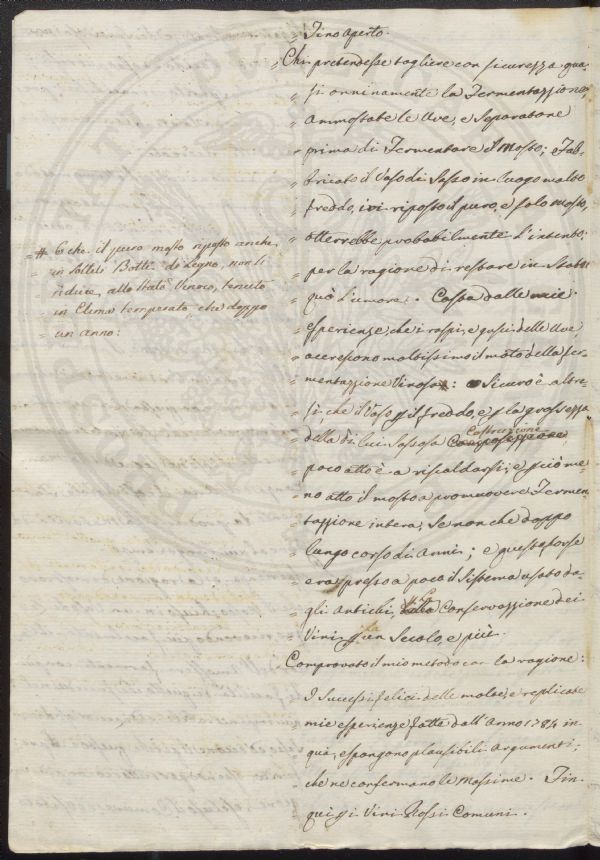 Tino aperto.
„ Chi pretendesse togliere con sicurezza qua-
„ si onninamente la Fermentazzione,
„ Ammostate le Uve, e Separatone
„ prima di Fermentare il Mosto; e Fab-
„ bricato il Vaso di Sasso in luogo molto
freddo, ivi riposto il puro, e solo Mosto,
„ otterrebbe probabilmente l'intento;
„ per la ragione di restare in Statu
„ quò l'umore:. Costa dalle mie
„ esperienze, che i raspi, e gusci delle Uve
„ accrescono moltissimo il moto della fer-
„ mentazzione Vinosa #: Sicuro è altre-
„ sì, che il Vaso pp il freddo, e p la grossezza
„ della di lui Sassosa Costruzzione
„ poco atto è a riscaldarsi; e p ciò me-
„ no atto il mosto a promuovere Fermen-
„ tazzione intera, Se non che doppo
„ lungo corso di Anni; e questa forse
„ era presso a poco il Sistema usato da-
„ gli Antichi, Conservazzione dei
„ Vini p un Secolo, e più.
Comprovato il mio metodo con la ragione:
I Successi felici delle molte, e replicate
mie esperienze fatte dall'Anno 1784 in
quà, espongono plausibili argumenti;
che ne confermano le Massime. Fin
qui p i Vini Rossi Comuni.
„ # E che il puro mosto riposto anche
„ in Botti di Legno, non si
„ riduce allo stato Vinoso, tenuto
„ in Clima temperato, che doppo
„ un anno: